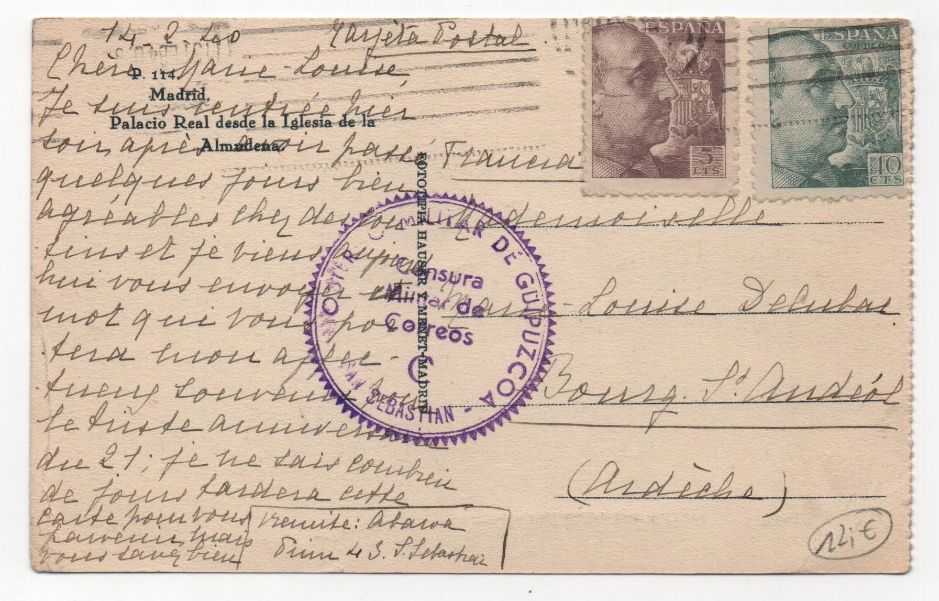 14 2 40 Tarjeta Postal
Chère Marie-Louise,
P. 114.
Madrid.
Palacio Real desde la Iglesia de la
Almudena.
Je suis rentrée hier
soir, après avoir passé
quelques jours bien
agréables chez des cou
sins et je viens aujourd'
hui vous envoyer ce
mot qui vous por
tera mon affec
tueux souvenir pour
le triste anniversaire
du 21; je ne sais combien
de jours tardera cette
carte pour vous
parvenir, mais
vous savez bien
remite: Abarca
Prim 43. S. Sebastian
FOTOTIPIA HAUSER Y MENET-MADRID
MILITAR DE GUIPUZCOA
SAN SEBASTIAN
Censura
Militar de
Correos
C
ESPAÑA
CORREOS
5
CTS
ESPAÑA
CORREOS
40
CTS
Francia
Mademoiselle
Marie-Louise
Bourg St Andéol
(Ardèche)
12,€